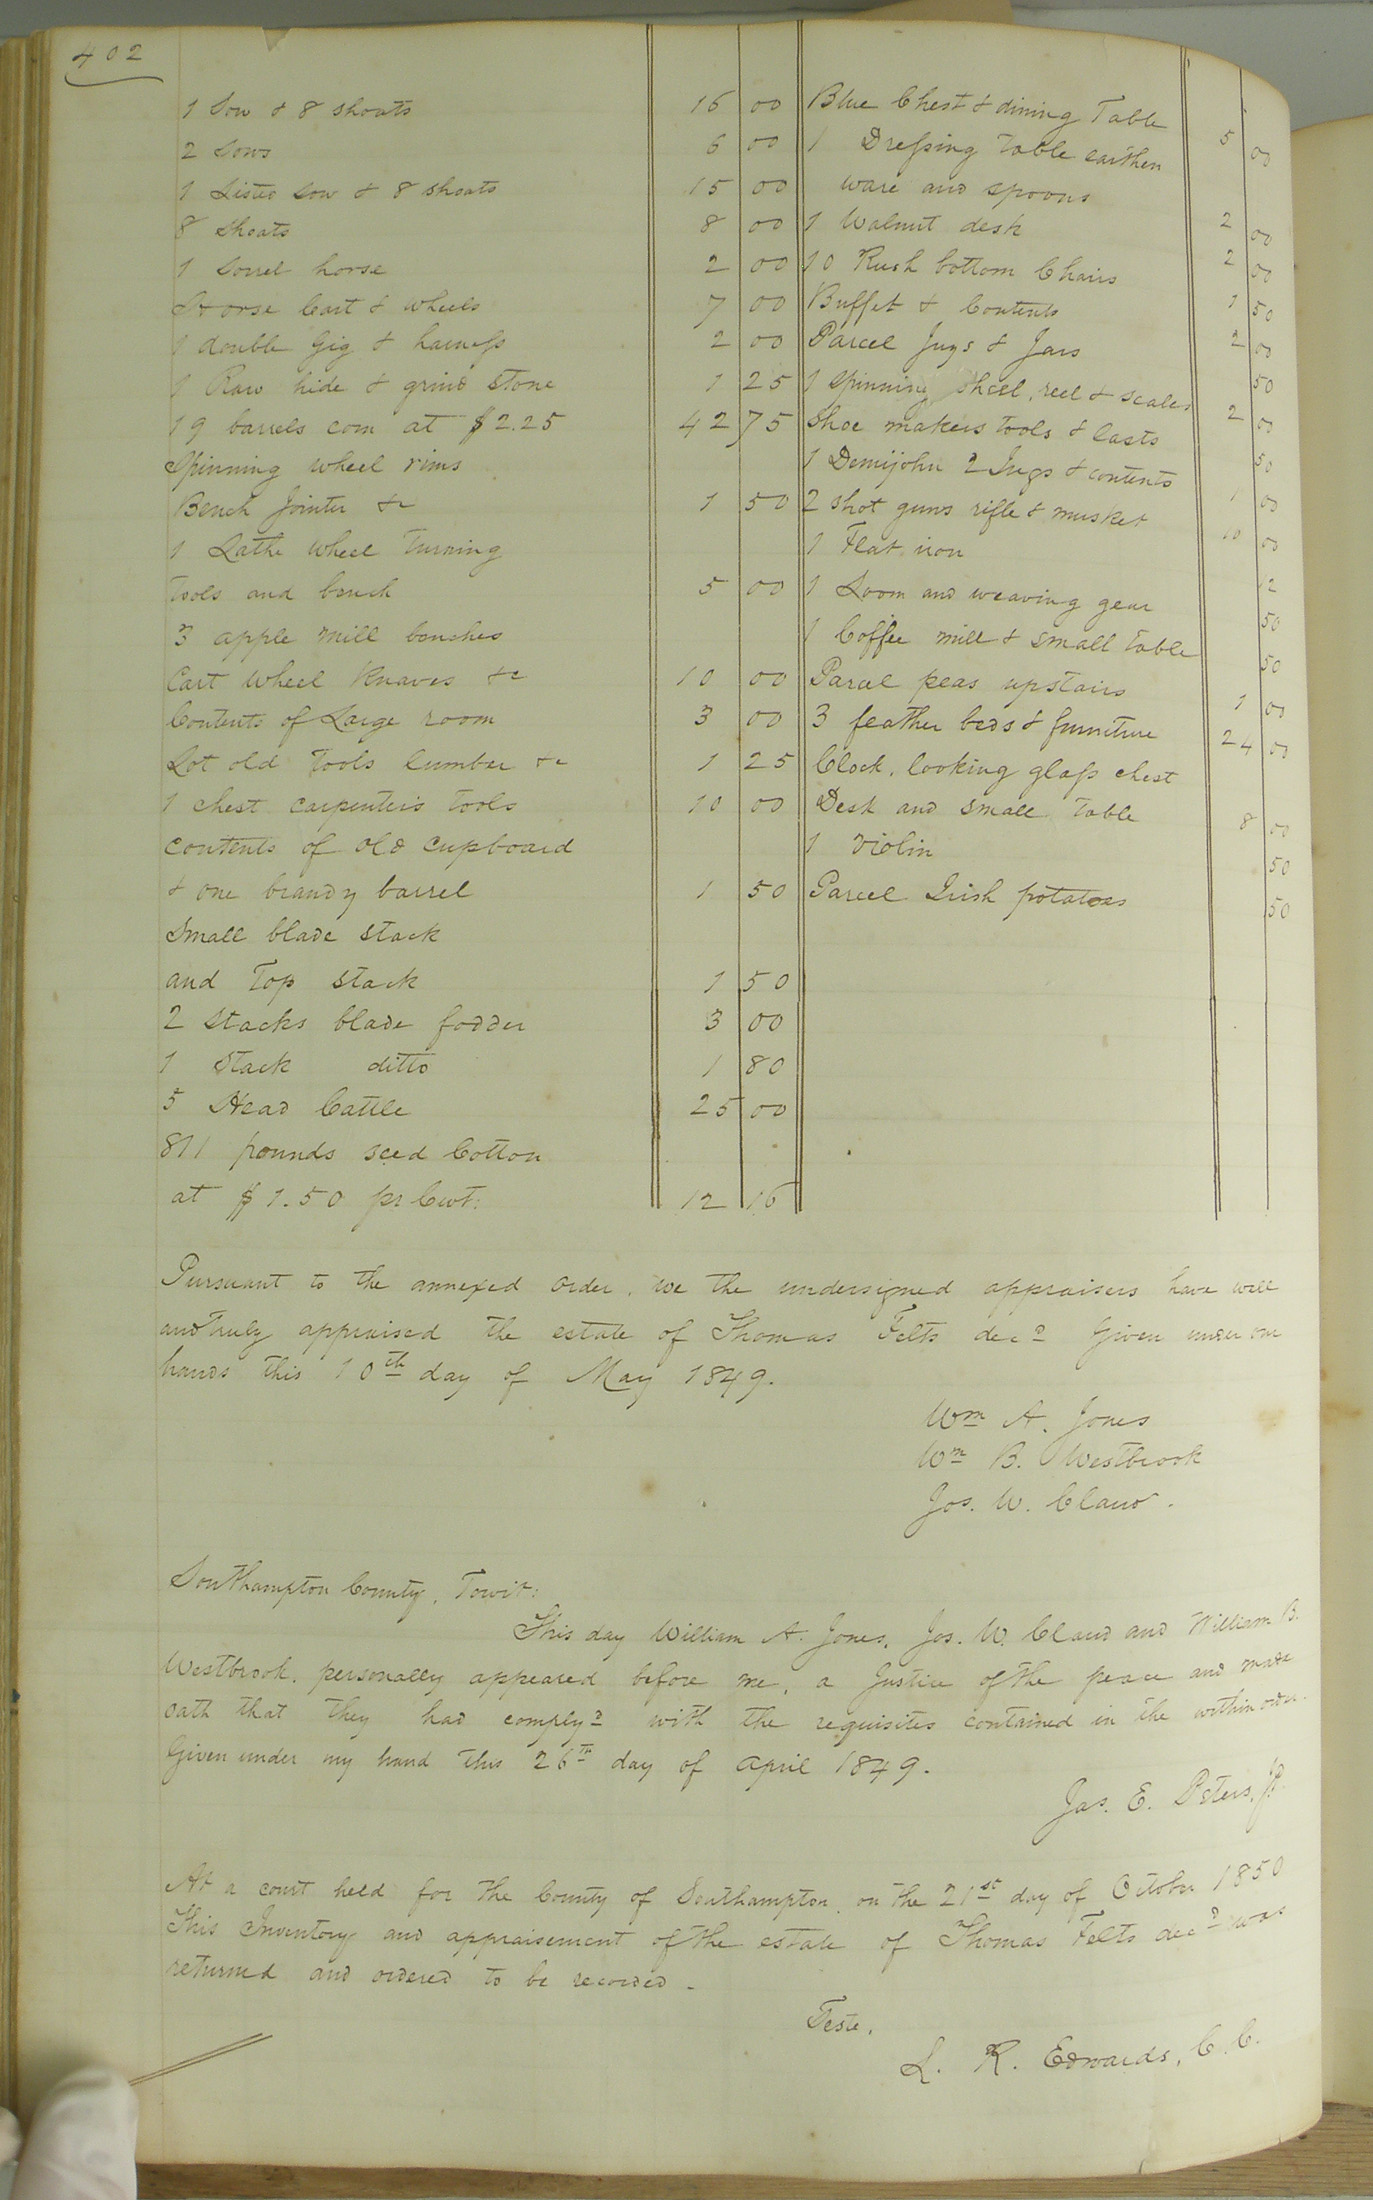 402
1 Sow & 8 shoats 16 00
2 Sows 6 00
1 Listed sow & 8 shoats 15 00
8 Shoats 8 00
1 Sorrel horse 2 00
Horse Cart & wheels 7 00
1 double Gig & harness 2 00
1 Raw hide & grind stone 1 25
19 barrels corn at $2.25 42 75
Spinning wheel rims
Bench Jointer &c 1 50
1 Lathe wheel Turning
Tools and bench 5 00
3 apple mill benches
Cart wheel Knaves &c 10 00
Contents of Large room 3 00
Lot old Tools lumber &c 1 25
1 chest carpenter's tools 10 00
contents of old cupboard
& one brandy barrel 1 50
Small blade stack
and Top stack 1 50
2 Stacks blade fodder 3 00
1 Stack ditto 1 80
5 Head Cattle 25 00
811 pounds seed Cotton
at $1.50 pr Cwt: 12 16
Blue Chest & dining Table 5 00
1 Dressing table earthen
ware and spoons 2 00
1 Walnut desk 2 00
10 Rush bottom Chairs 1 50
Buffet & Contents 2 00
Parcel Jugs & Jars 50
1 Spinning wheel, reel & scales 2 00
Shoe makers tools & lasts 50
1 Demijohn 2 Jugs & contents 1 00
2 shot guns rifle & musket 10 00
1 Flat iron 12
1 Loom and weaving gear 50
1 Coffee mill & small table 50
Parcel peas upstairs 1 00
3 feather beds & furniture 24 00
Clock, looking glass chest
Desk and small table 8 00
1 Violin 50
Parcel Irish potatoes 50
Pursuant to the annexed order, we the undersigned appraisers have well
and truly appraised the estate of Thomas Felts decd Given under our
hands this 10th day of May 1849.
Wm A. Jones
Wm B. Westbrook
Jos. W. Claud.
Southampton County, Towit:
This day William A. Jones, Jos. W. Claud and William B.
Westbrook, personally appeared before me, a Justice of the peace and made
oath that they had complyd with the requisites contained in the within order.
Given under my hand this 26th day of April 1849.
Jas. E. Peters, JP.
At a court held for the County of Southampton, on the 21st day of October 1850
This Inventory and appraisement of the estate of Thomas Felts decd was
returned and ordered to be recorded -
Teste,
L. R. Edwards, C. C.